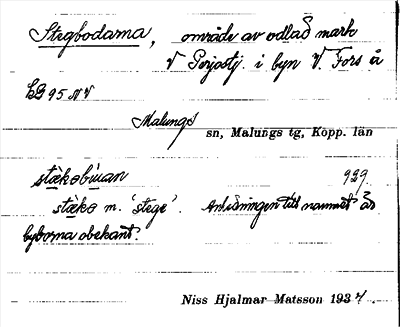 Stegbodarna, område av odlad mark
V Perjostj. i byn V. Fors å
EB 95 NV
Malungs sn, Malungs tg, Kopp. län
stækəbúan 929.
stækə m. 'stege'. Anledningen till namnet är
byborna obekant.
Niss Hjalmar Matsson 1937.